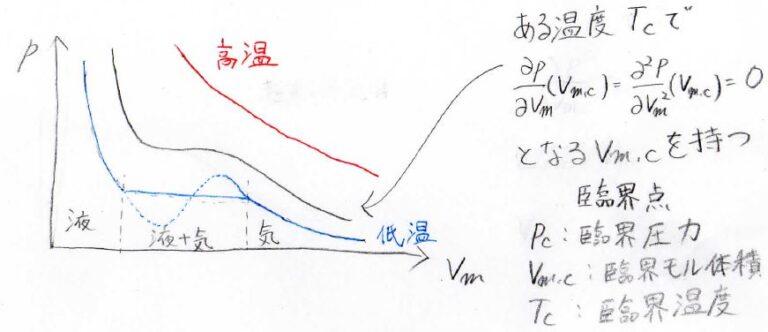 p
高温
低温
液
液+気
気
Vm
ある温度 Tcで
∂p/∂Vm(Vm,c) = ∂²p/∂Vm²(Vm,c) = 0
となる Vm,cを持つ
臨界点
Pc:臨界圧力
Vm,c:臨界モル体積
Tc:臨界温度